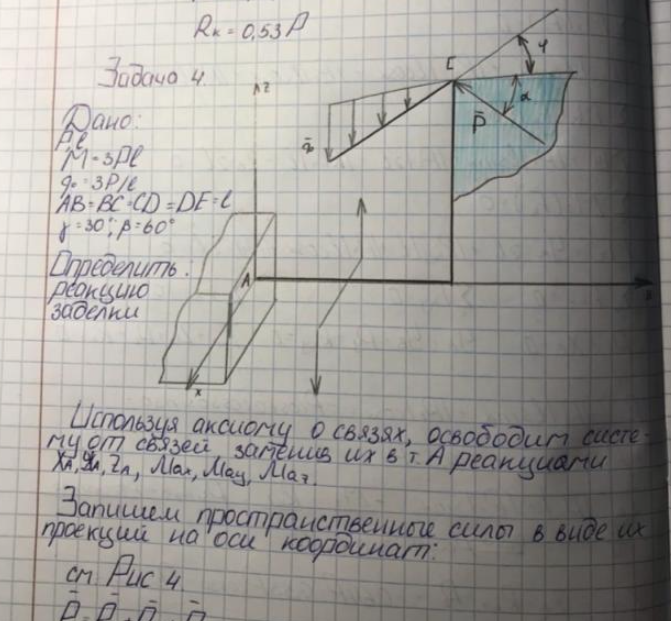 Rк = 0,53P
Задача 4.
Дано:
P, l
M = 3Pl
q₀ = 3P/l
AB = BC = CD = DE = l
γ = 30°; β = 60°
Определить:
реакцию
заделки
z
E
φ
α
P̄
q̄
A
x
Используя аксиому о связях, освободим систе-
му от связей, заменив их в т. А реакциями
XA, YA, ZA, Max, May, Maz.
Запишем пространственные силы в виде их
проекций на оси координат:
см Рис 4